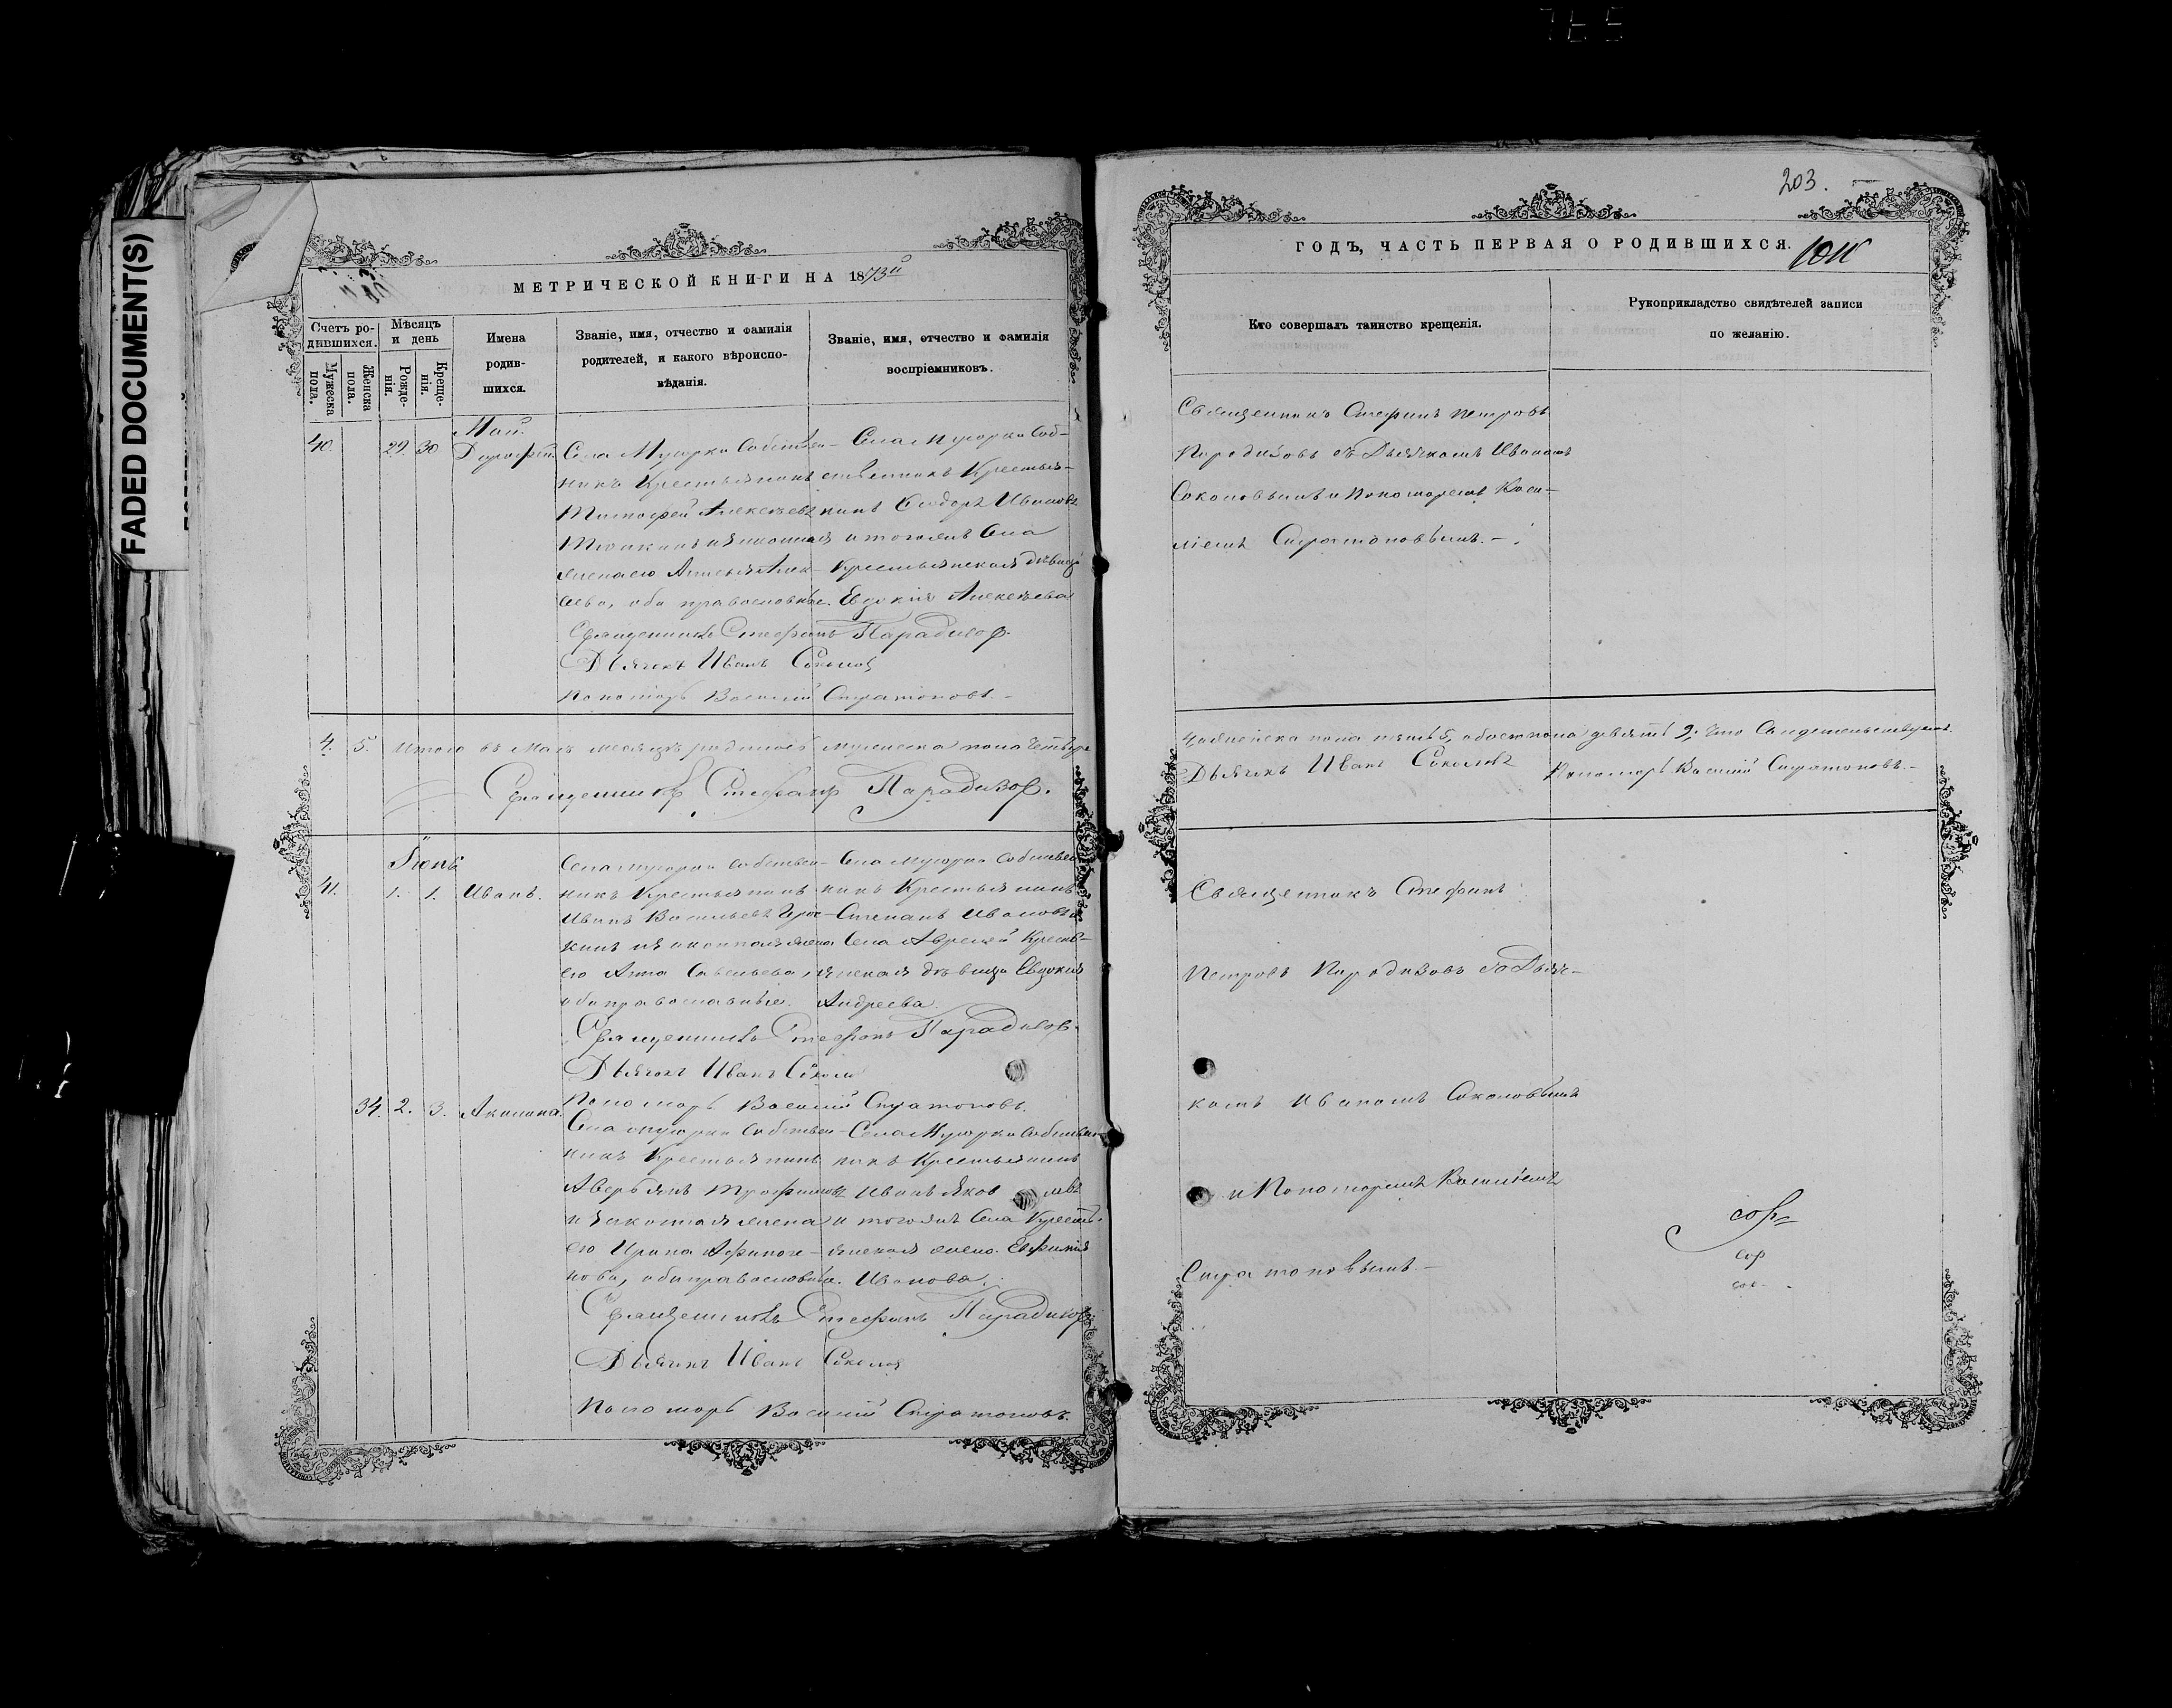 FADED DOCUMENT(S)
203.
МЕТРИЧЕСКОЙ КНИГИ НА 1873й
Счетъ ро-
дившихся.
Мужеска пола.
Женска пола.
Мѣсяцъ
и день
Рожде-
нія.
Креще-
нія.
Имена
родив-
шихся.
Званіе, имя, отчество и фамилія
родителей, и какого вѣроиспо-
вѣданія.
Званіе, имя, отчество и фамилія
воспріемниковъ.
Май.
40. 29. 30 Дорофей.
Села Мусорки Собствен-
никъ Крестьянинъ
Тимофей Алексѣевъ
и законная
жена его Алек-
сеева, оба православные.
Села Мусорки Соб-
ственникъ Крестья-
нинъ Ѳеодоръ Ивановъ
и тогожъ Села
Крестьянская дѣвица
Евдокія Алексѣева
Священникъ Стефанъ Парадизов.
Дьячекъ Иванъ Соколов
Пономарь Василий Стратоновъ.
4. 5. Итого въ Маѣ месяцѣ родилось мужеска пола четыре
Священникъ Стефанъ Парадизов.
Іюнь
41. 1. 1. Иванъ.
Села Мусорки собствен-
никъ Крестьянинъ
Иванъ Васильевъ
и законная жена
его Анна Савельева,
оба православные.
Села Мусорки Собствен
никъ Крестьянинъ
Степанъ Ивановъ и
Села Крестьянская дѣвица Евдокия
Андреева.
Священникъ Стефанъ Парадизов.
Дьячекъ Иванъ Соколов
Пономарь Василий Стратоновъ.
34. 2. 3. Акилина.
Села Мусорки Собствен
никъ Крестьянинъ
Аверьянъ Трофимовъ
и законная жена
его Ирина Афиноге-
нова, оба православные.
Села Мусорки Собствен
никъ Крестьянинъ
Иванъ Яковлевъ
и тогожъ Села Кресть-
янская жена Евфимия
Иванова.
Священникъ Стефанъ Парадизов
Дьячекъ Иванъ Соколов
Пономарь Василий Стратоновъ.
ГОДЪ, ЧАСТЬ ПЕРВАЯ О РОДИВШИХСЯ.
Кто совершалъ таинство крещенія.
Рукоприкладство свидѣтелей записи
по желанію.
Священникъ Стефанъ Петровъ
Парадизовъ съ Дьячкомъ Иваномъ
Соколовымъ и Пономаремъ Васи-
ліемъ Стратоновымъ.
женска пола пять 5, обоего пола девять 9; Что Свидетельствуемъ
Дьячекъ Иванъ Соколовъ Пономарь Василий Стратоновъ.
Священникъ Стефанъ
Петровъ Парадизовъ съ Дьяч-
комъ Иваномъ Соколовымъ
и Пономаремъ Василіемъ
Стратоновымъ.